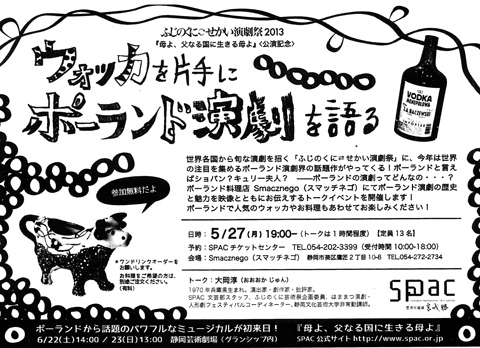 ふじのくに⇄せかい演劇祭2013
『母よ、父なる国に生きる母よ』〈公演記念〉
ウォッカを片手に
ポーランド演劇を語る
VODKA
MONOPOLOWA
J.A. BACZEWSKI
世界各国から旬な演劇を招く「ふじのくに⇄せかい演劇祭」に、今年は世界
の注目を集めるポーランド演劇界の話題作がやってくる！ポーランドと言え
ばショパン？キュリー夫人？ ――ポーランドの演劇ってどんなの・・・？
ポーランド料理店 Smacznego（スマッチネゴ）にてポーランド演劇の歴史
と魅力を映像とともにお伝えするトークイベントを開催します！
ポーランドで人気のウォッカやお料理もあわせてお楽しみください！
参加無料だよ
＊ワンドリンクオーダーを
お願いします。
お料理をご希望の方は、
別途ご注文ください。
（有料）
日時：5/27(月)19:00―（トークは1時間程度）【定員13名】
予約：SPACチケットセンター TEL.054-202-3399（受付時間 10:00-18:00）
会場：Smacznego（スマッチネゴ） 静岡市葵区鷹匠2丁目10-8 TEL.054-272-2734
トーク：大岡淳（おおおか じゅん）
1970年兵庫県生まれ。演出家・劇作家・批評家。
SPAC文芸部スタッフ、ふじのくに芸術祭企画委員、はままつ演劇・
人形劇フェスティバルコーディネーター、静岡文化芸術大学非常勤講師。
SPAC
芸術総監督 宮城聰
ポーランドから話題のパワフルなミュージカルが初来日！
『母よ、父なる国に生きる母よ』
6/22(土)14:00 / 23(日)13:00 静岡芸術劇場（グランシップ内）
SPAC 公式サイト http://www.spac.or.jp